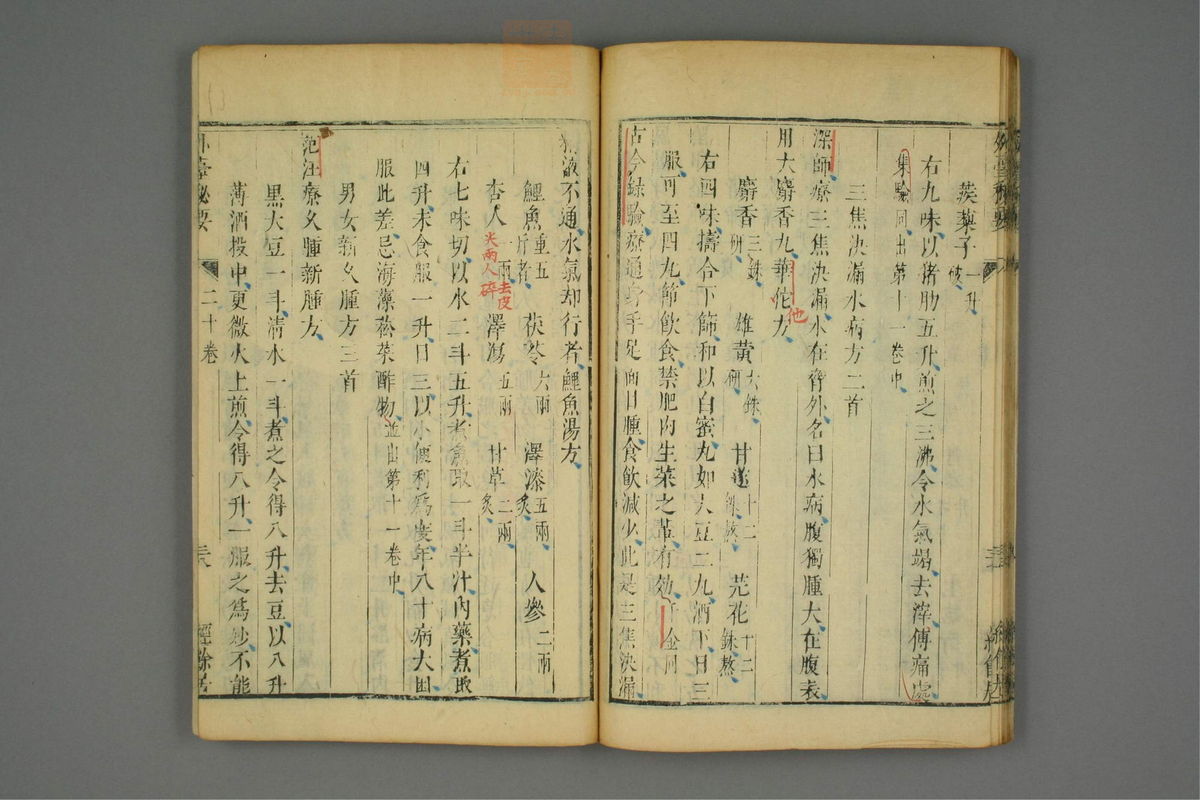 蒺䔧子一升破
右九味以猪肪五升煎之三沸令水氣竭去滓傅痛處
集驗同出第十一卷中
三焦決漏水病方二首
深師療三焦決漏水在脅外名曰水病腹獨腫大在腹表
用大麝香九華佗方
他
麝香三銖研 雄黃六銖研 甘遂十二銖熬 芫花十二銖熬
右四味擣合下篩和以白蜜丸如大豆二丸酒下日三
服可至四丸節飲食禁肥肉生菜之輩有効千金同
古今録驗療通身手足面目腫食飲減少此是三焦決漏
液不通水氣却行者鯉魚湯方
鯉魚重五斤者 茯苓六兩 澤漆五兩炙 人參二兩
杏人一兩去皮尖兩人碎 澤瀉五兩 甘草二兩炙
右七味切以水二斗五升煮魚取一斗半汁內藥煮取
四升未食服一升日三以小便利爲度年八十病大困
服此差忌海藻菘菜酢物並出第十一卷中
男女新久腫方三首
范汪療久腫新腫方
黒大豆一斗清水一斗煮之令得八升去豆以八升
薄酒投中更微火上煎令得八升一服之爲妙不能
外臺秘要 二十卷 經餘居